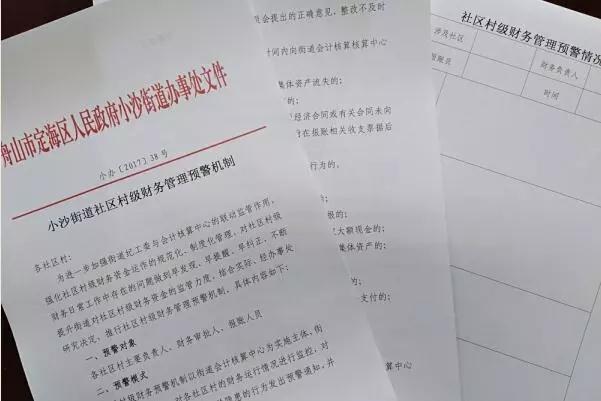 舟山市定海区人民政府小沙街道办事处文件
小办〔2017〕38号
小沙街道社区村级财务管理预警机制
各社区村：
为进一步加强街道纪工委与会计核算中心的联动监管作用，
强化社区村级财务资金运作的规范化、制度化管理，对社区村级
财务日常工作中存在的问题做到早发现、早提醒、早纠正，不断
提升街道对社区村级财务资金的监管力度，结合实际，经办事处
研究决定，推行社区村级财务管理预警机制，具体内容如下：
一、预警对象
各社区村主要负责人、财务审批人、报账人员
二、预警模式
级财务预警机制以街道会计核算中心为实施主体，街
对各社区村的财务运行情况进行监控，对
患的行为发出预警通知，并
员会提出的正确意见，整改不及时
时间内向街道会计核算核算中心
集体资产流失的；
的；
经济合同或有关合同未向
前在报账相关收支票据后
行为的。
的；
报的；
支大额现金的；
集体资产的；
的；
支付的；
算中心
社区村级财务管理预警情况
涉及社区
财务负责人
报账员
时间